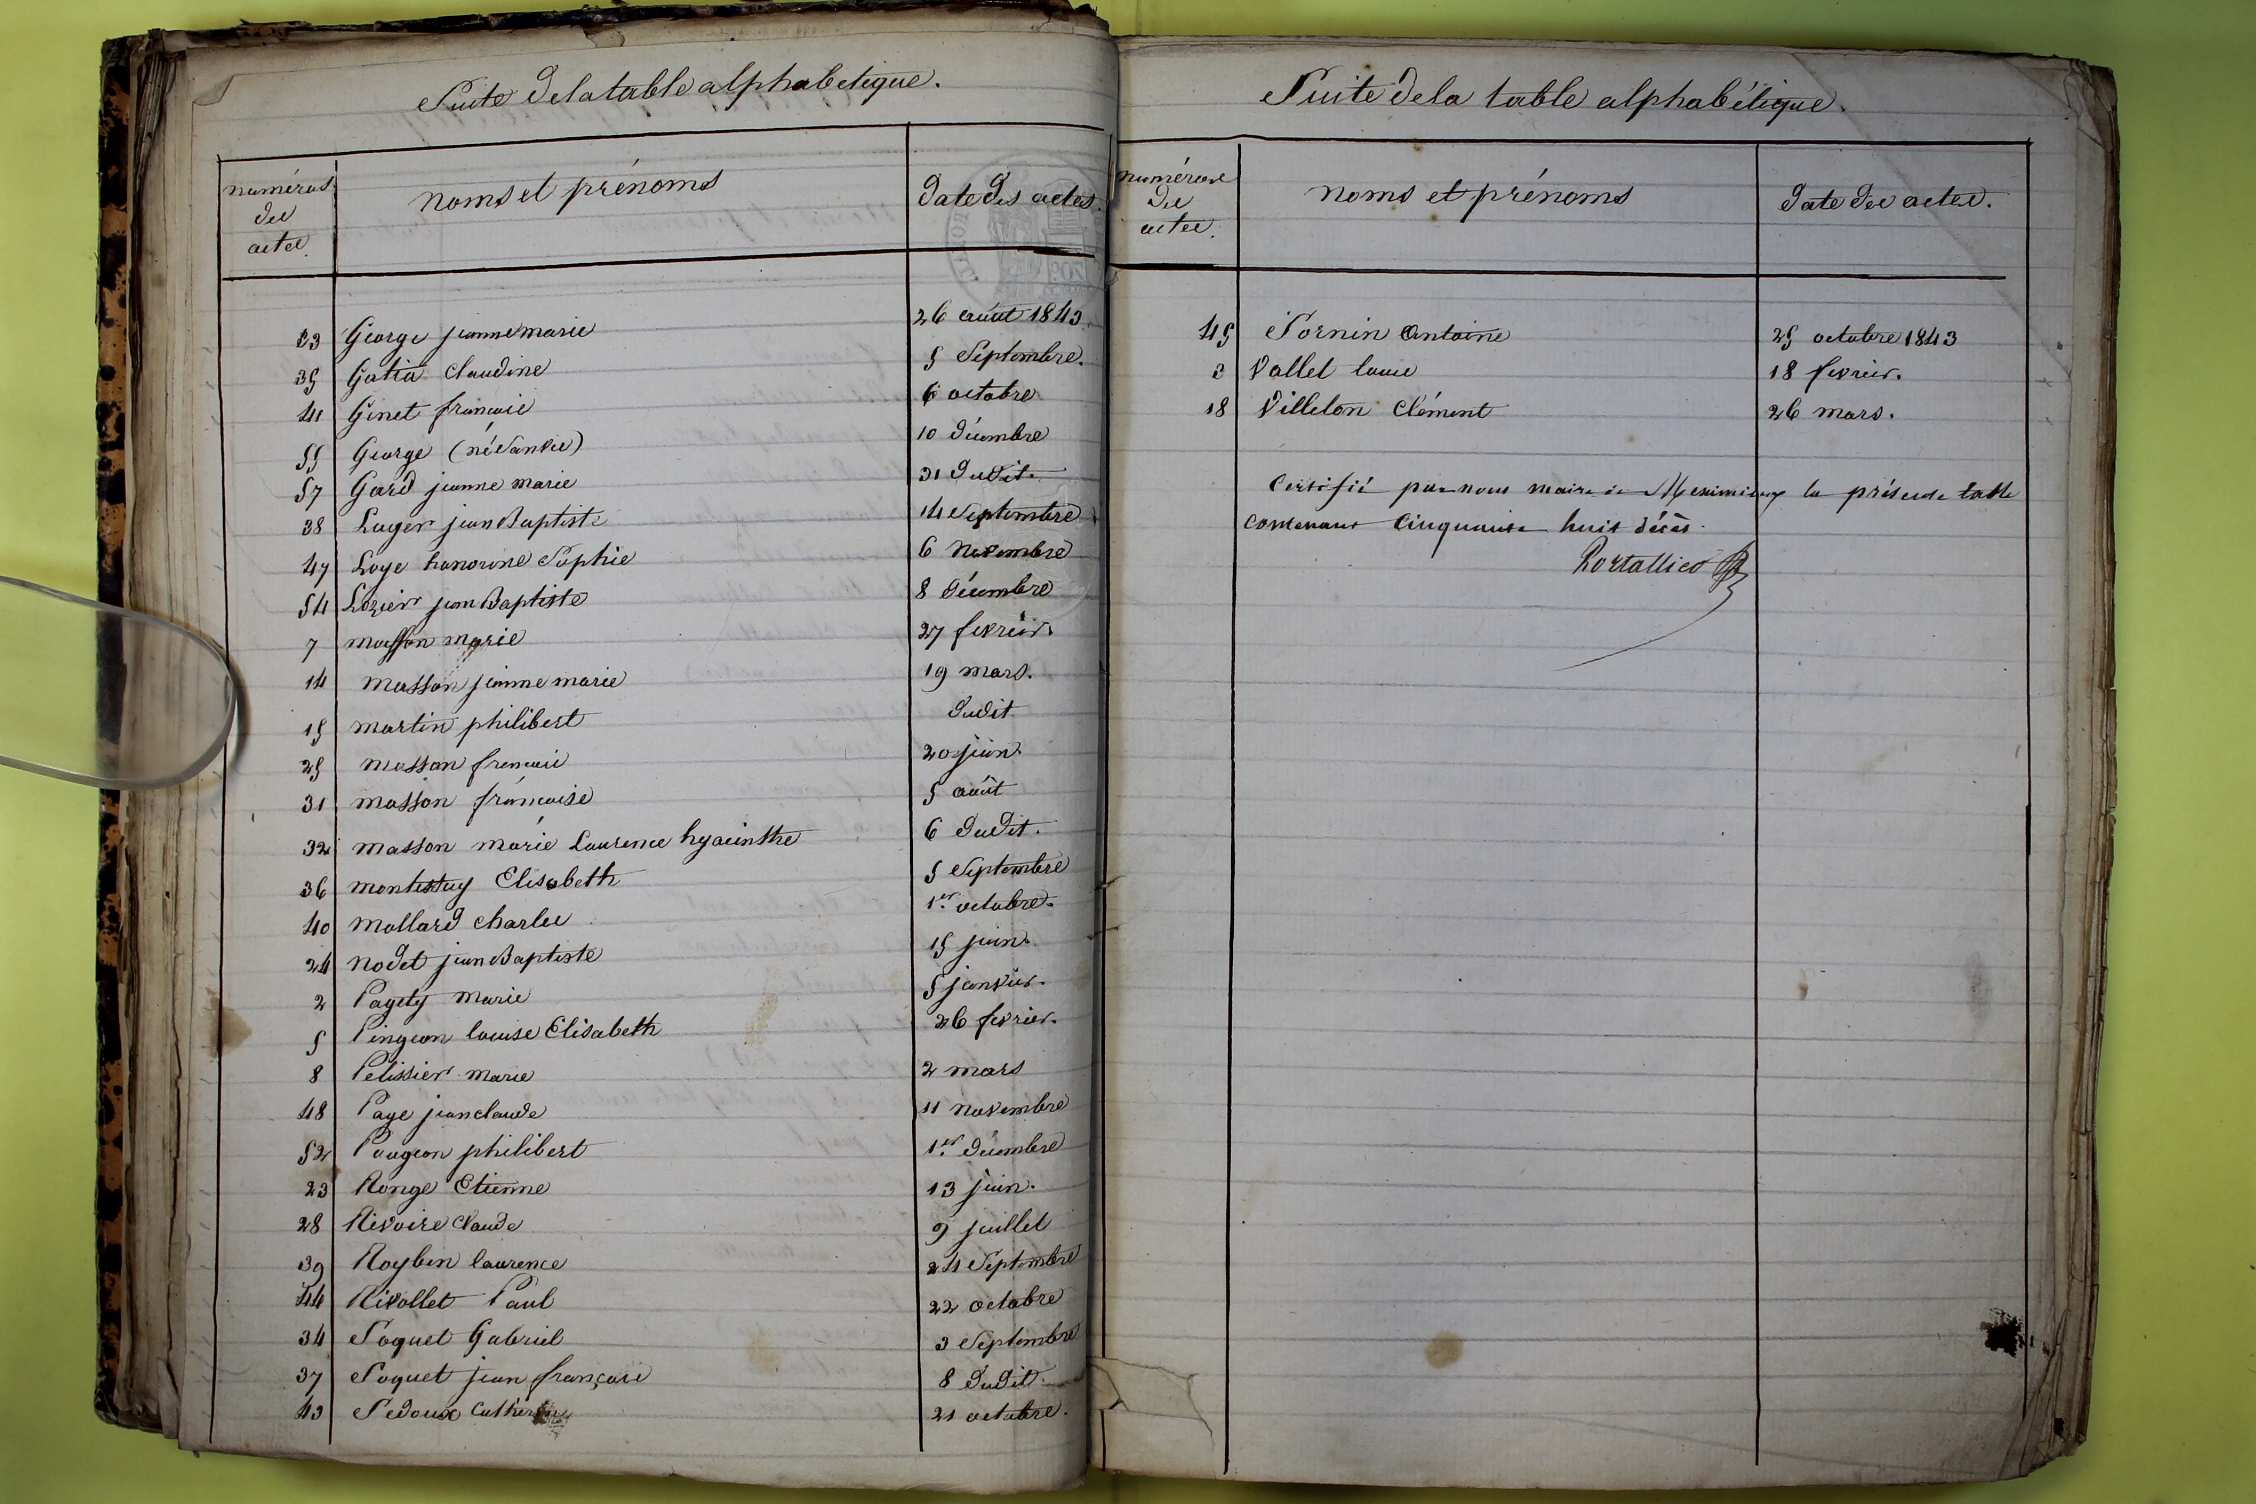 Suite de la table alphabetique.
numéros des actes
noms et prénoms
date des actes.
33 George jeanne marie 26 août 1843
35 Gatia claudine 5 Septembre.
41 Genet françois 6 octobre
55 George (né Sanvie) 10 décembre
57 Gard jeanne marie 31 dudit.
38 Luger jean Baptiste 14 Septembre
47 Loye honorine Sophie 6 Novembre
54 Lozier jean Baptiste 8 décembre
7 masson marie 27 fevrier.
14 masson jeanne marie 19 mars.
15 martin philibert dudit
25 masson françois 20 juin.
31 masson françoise 5 août
32 masson marie Laurence hyacinthe 6 dudit.
36 montessuy Elisabeth 5 Septembre
40 mollard charles 1er octobre.
24 nodet jean Baptiste 15 juin.
2 Pagety marie 5 janvier.
5 Pingeon louise Elisabeth 26 fevrier.
8 Pelissier marie 2 mars
48 Page jean claude 11 novembre
52 Paugeon philibert 1er décembre
23 Ronge Etienne 13 juin.
28 Rivoire claude 9 juillet
39 Roybin laurence 24 Septembre
44 Rivollet Paul 22 octobre
34 Soquet Gabriel 3 Septembre
37 Soquet jean françois 8 dudit.
43 Sedoux Catherine 21 octobre.
Suite de la table alphabétique.
numéros des actes.
noms et prénoms
date des actes.
45 Sornin Antoine 25 octobre 1843
3 Vallet louis 18 fevrier.
18 Villeton Clément 26 mars.
Certifié par nous maire de Meximieux la présente table
contenant cinquante huit décès.
Portallier